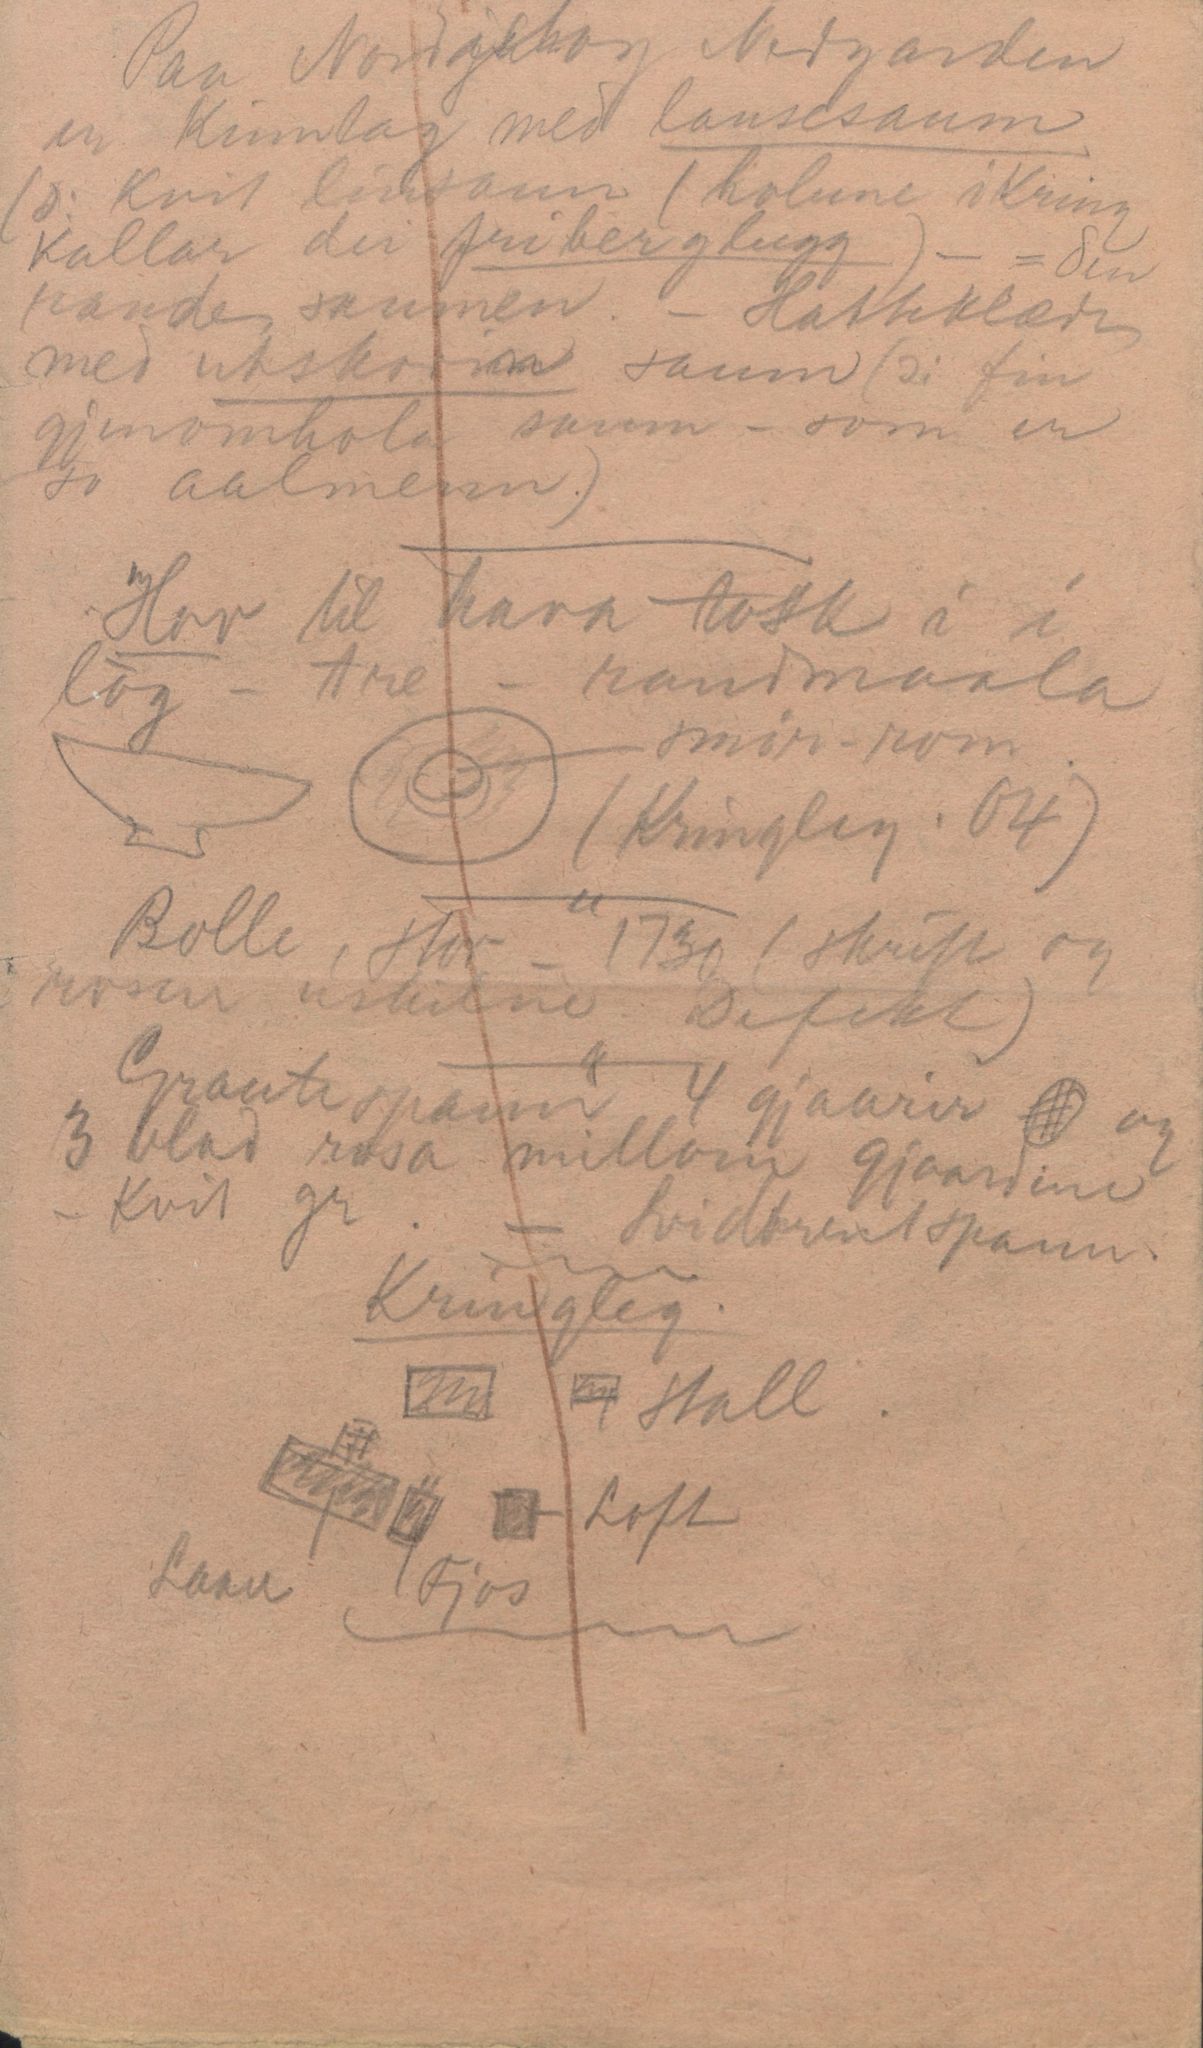 Paa Nordgaarhoug Nedgarden
er Kinnlag med lausesaum
(ɔ: Kvit linsaum (holune ikring
kallar dei friberglugg) – = den
raude saumen. – Hatteklæde
med utskorin saum (ɔ: fin
gjenomhola saum – som er
so aalmenn.)
Hov til hava tosk i i
lög – tre – randmaala
smör-rom.
(Kringleg. 04)
Bolle, stor – 1730 (skrift og
rosur uskilne. Defekt)
Grautspann 4 gjaarir og
3 blad rosa millom gjaardine
– Kvit gr. – Svidbrentspann.
Kringleg.
Stall.
Loft
Laau Fjos